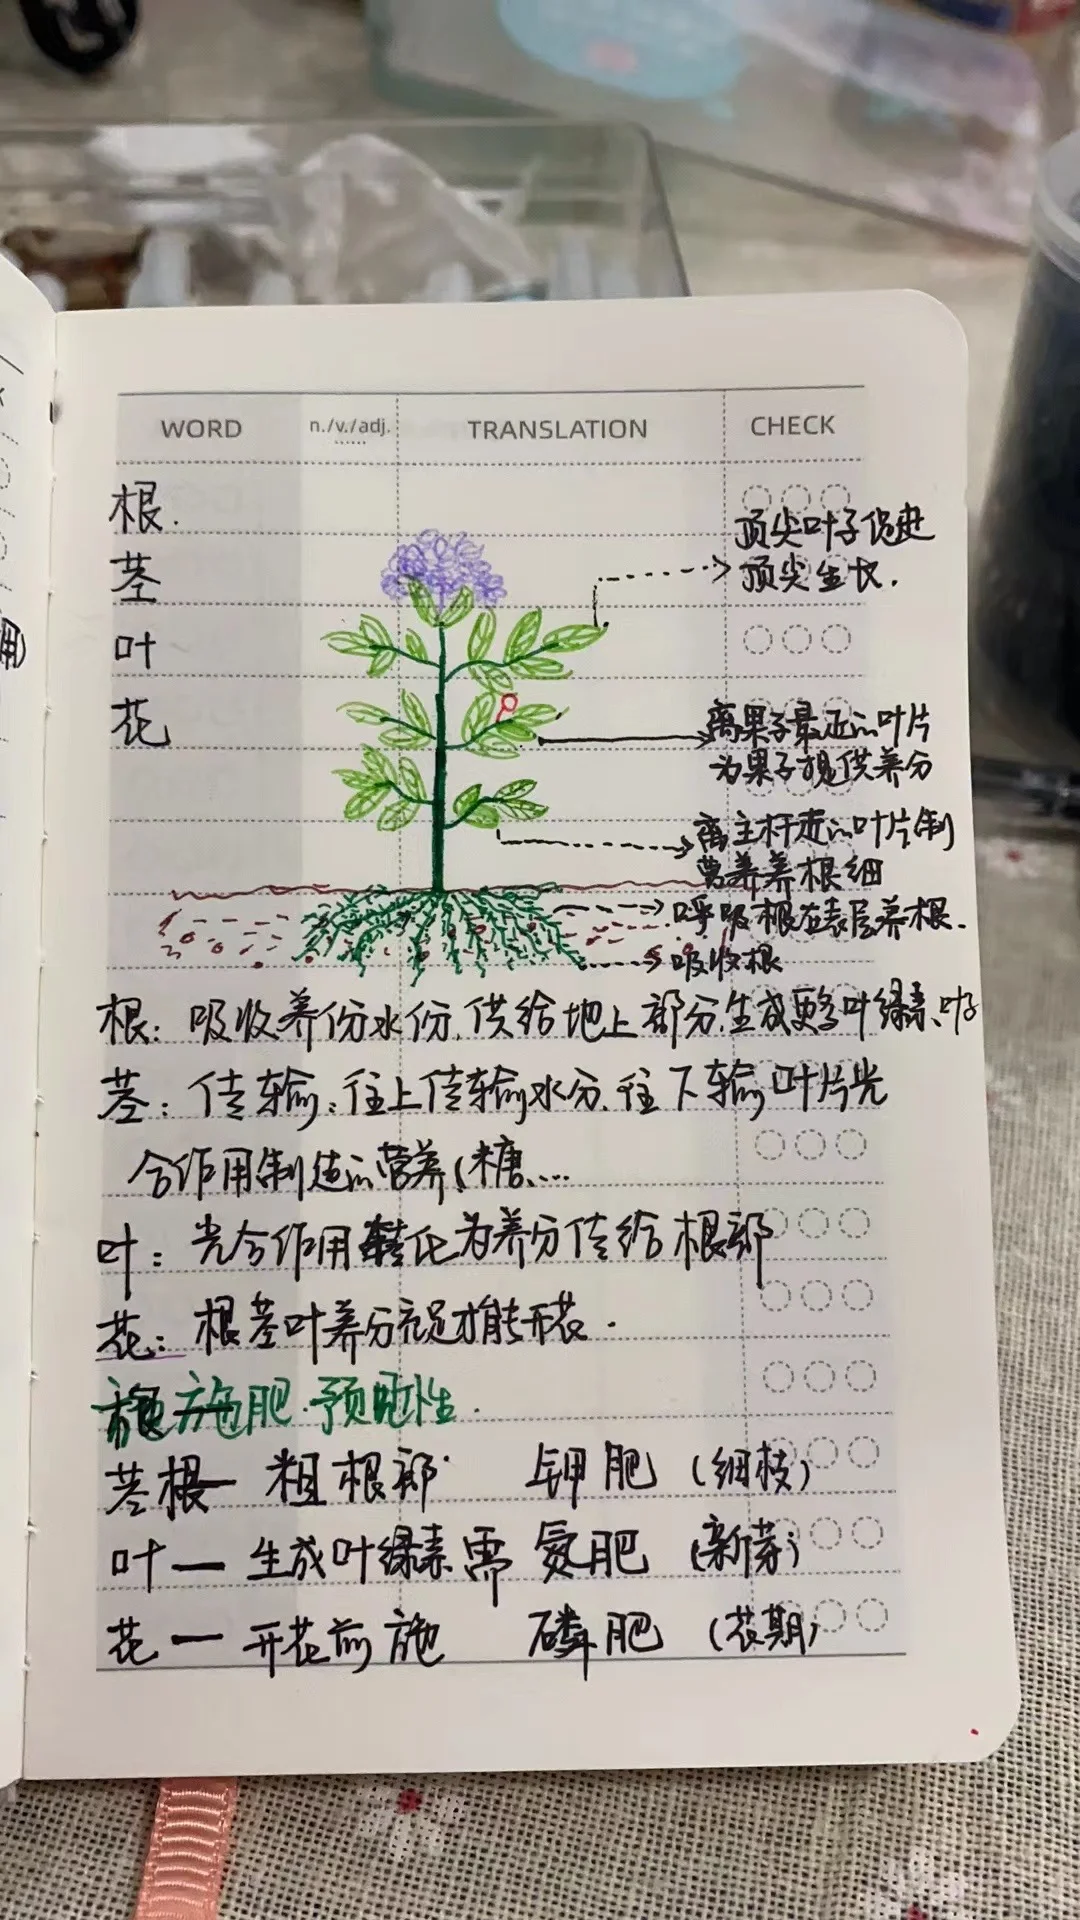 WORD n./v./adj. TRANSLATION CHECK
根.
茎
叶
花
顶尖叶子促进
顶尖生长.
离果子最近的叶片
为果子提供养分
离主杆近的叶片制
营养养根细
呼吸根在表层养根.
吸收根
根: 吸收养份水份,供给地上部分,生成更多叶绿素、叶子
茎: 传输: 往上传输水分, 往下输叶片光
合作用制造的营养(糖....
叶: 光合作用转化为养分传给根部
花: 根茎叶养分充足才能开花.
施肥 预见性.
茎根— 粗根部 钾肥 (细枝)
叶— 生成叶绿素需 氮肥 (新芽)
花— 开花前施 磷肥 (花期)
用)